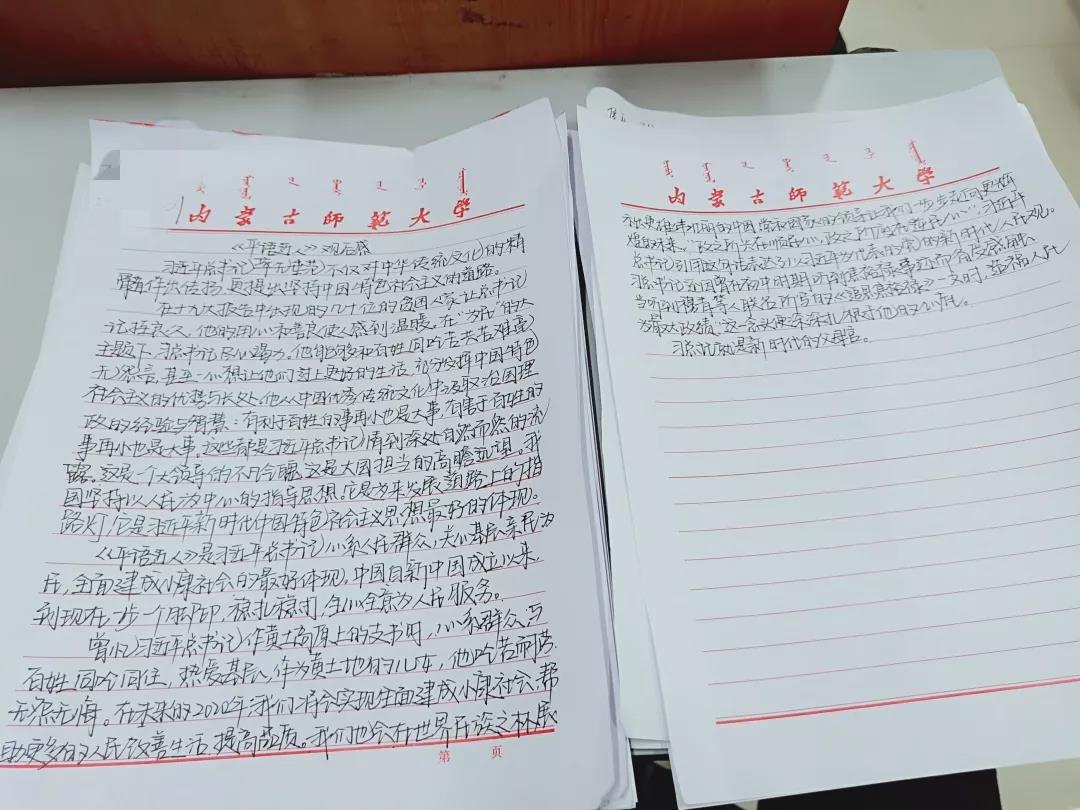 内蒙古师范大学
《平语近人》观后感
习近平总书记率先垂范不仅对中华传统文化的精
髓有作出传扬,更提出坚持中国特色社会主义的道路。
在十九大报告中出现的几十位的贫困人家让总书记
记挂良久,他的用心和善良使人感到温暖。在"为民"的大
主题下,习总书记尽心竭力,他能够和百姓同吃苦共苦难
无怨言,甚至一心想让他们过上更好的生活,充分发挥中国特色
社会主义的优势与长处,他从中国优秀传统文化中汲取治国理
政的经验与智慧:有利于百姓的事再小也是大事,有害于百姓的
事再小也是大事。这些都是习近平总书记情到深处自然而然的流
露。这是一个大领导的不同含蕴,这是大国担当的高瞻远瞩。我
国坚持以人民为中心的指导思想,它是未来发展道路上的指
路灯,它是习近平新时代中国特色社会主义思想最好的体现。
《平语近人》是习近平总书记心系人民群众,关心基层亲民为
民,全面建成小康社会的最好体现,中国自新中国成立以来,
到现在一步一个脚印,稳扎稳打,全心全意为人民服务。
曾记习近平总书记作黄土高原上的支书时,心系群众,与
百姓同吃同住,热爱基层,作为黄土地的儿子,他吃苦耐劳
无怨无悔。在未来的2020年我们将会实现全面建成小康社会,帮
助更多的人民改善生活,提高品质。我们也会在世界民族之林展
第 页
内蒙古师范大学
示出更雄伟壮丽的中国,党和国家的领导让我们一步步走向更辉
煌的未来。"政之所兴在顺民心,政之所废在逆民心",习近平
总书记引用这句话表达了以习近平为代表的党的新时代人民观。
习总书记还因曾在初中时期听到焦裕禄事迹而有反感触,
当听到穆青等人联名所写的《追思焦裕禄》一文时,造福人民
为最大政绩,这一亲民便深深扎根于他的心中。
习总书记就是新时代的父母官。